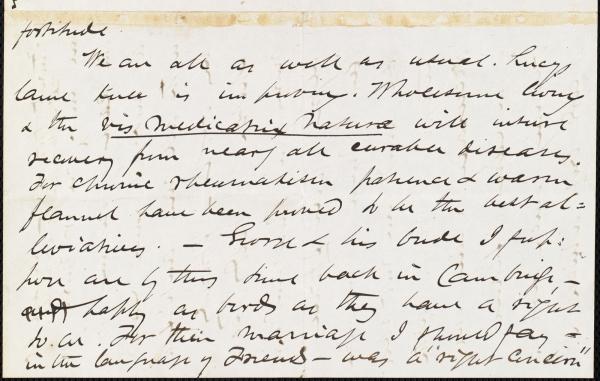 fortitude.
We are all as well as usual. Lucy's
lame knee is improving. Wholesome living
& the vis medicatrix naturæ will insure
recovery from nearly all curable diseases.
For chronic rheumatism patience & warm
flannel have been proved to be the best al=
leviatives. – George & his bride I sup:
pose are by this time back in Cambridge –
happy as birds as they have a right
to be. For their marriage I should say –
in the language of Friends – was a "right concern"